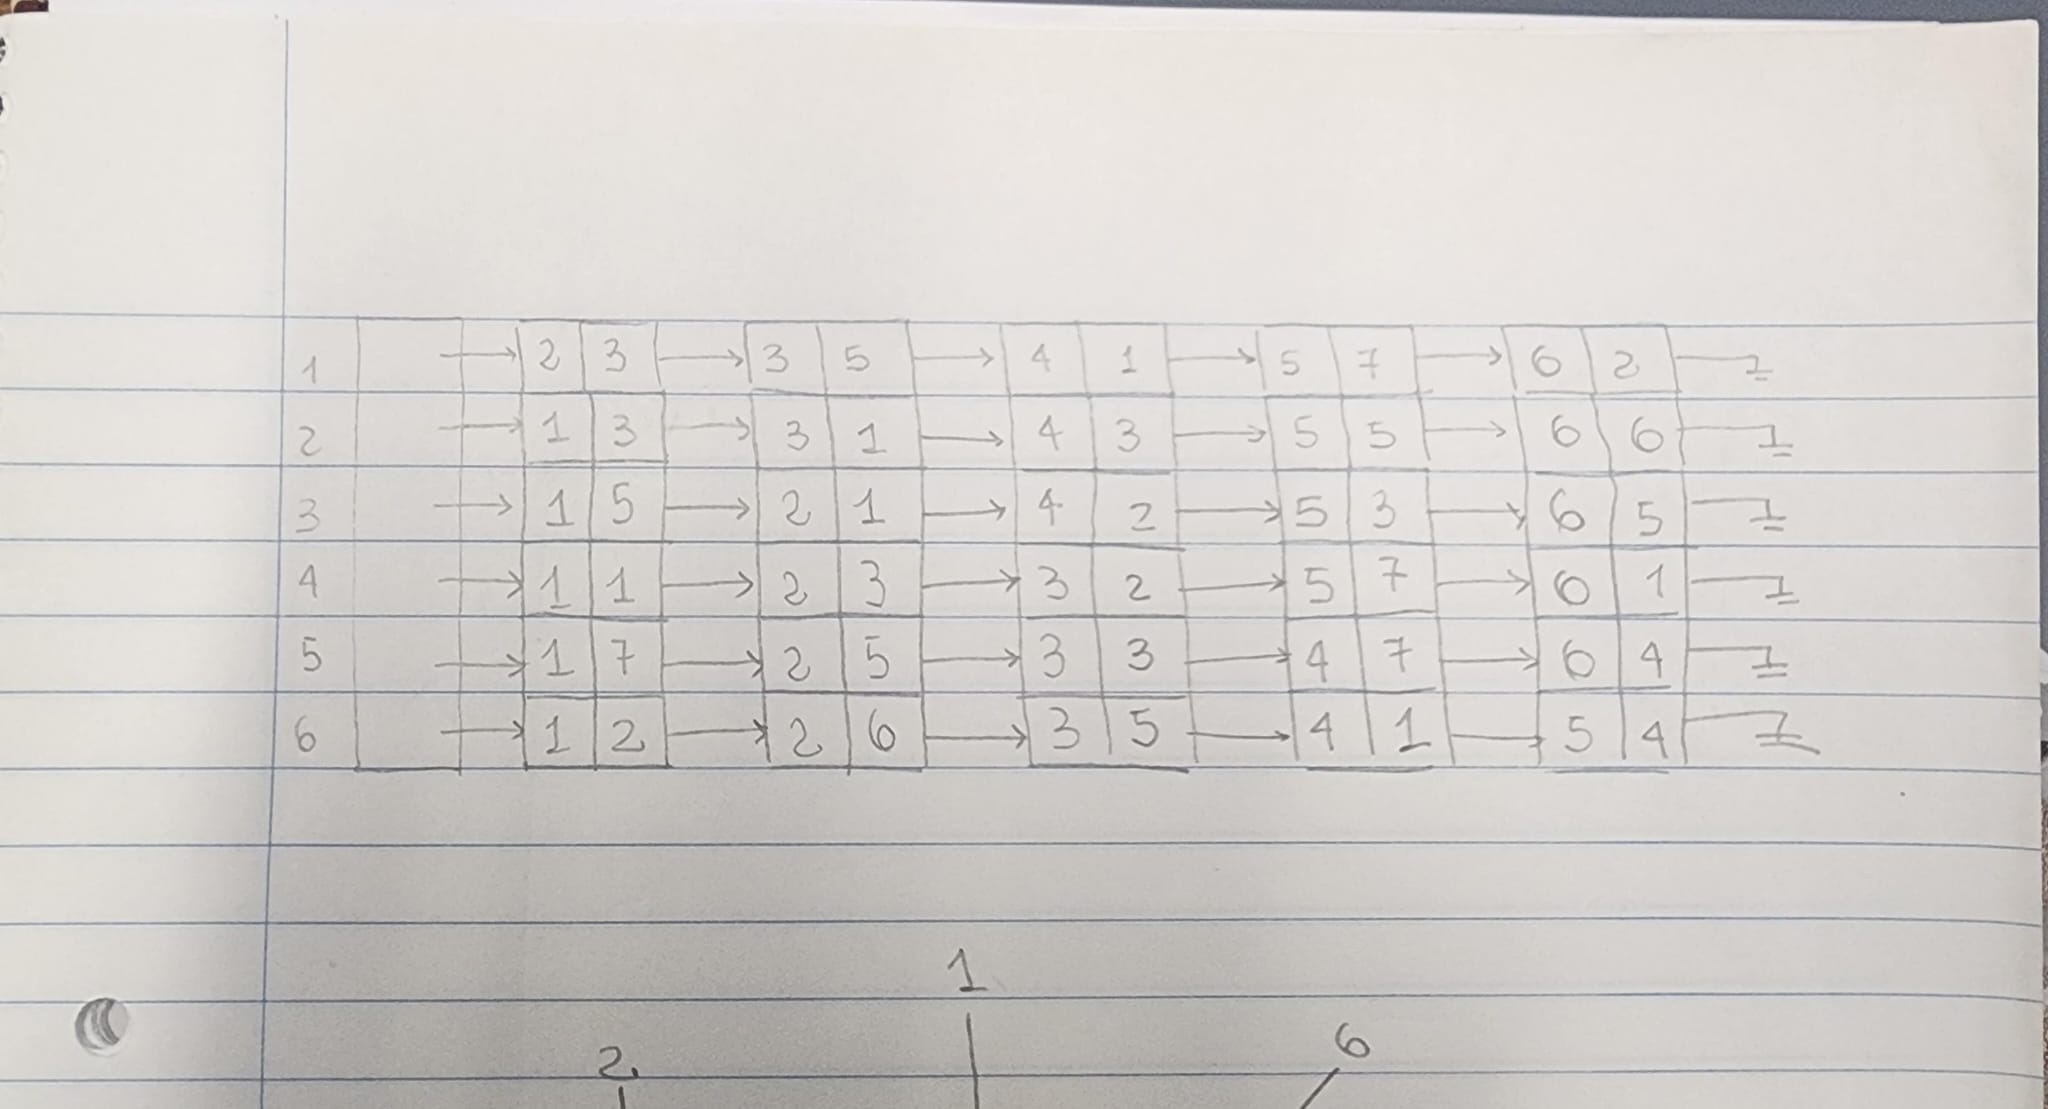 1 → 2 3 → 3 5 → 4 1 → 5 7 → 6 2
2 → 1 3 → 3 1 → 4 3 → 5 5 → 6 6
3 → 1 5 → 2 1 → 4 2 → 5 3 → 6 5
4 → 1 1 → 2 3 → 3 2 → 5 7 → 6 1
5 → 1 7 → 2 5 → 3 3 → 4 7 → 6 4
6 → 1 2 → 2 6 → 3 5 → 4 1 → 5 4
1
2 6